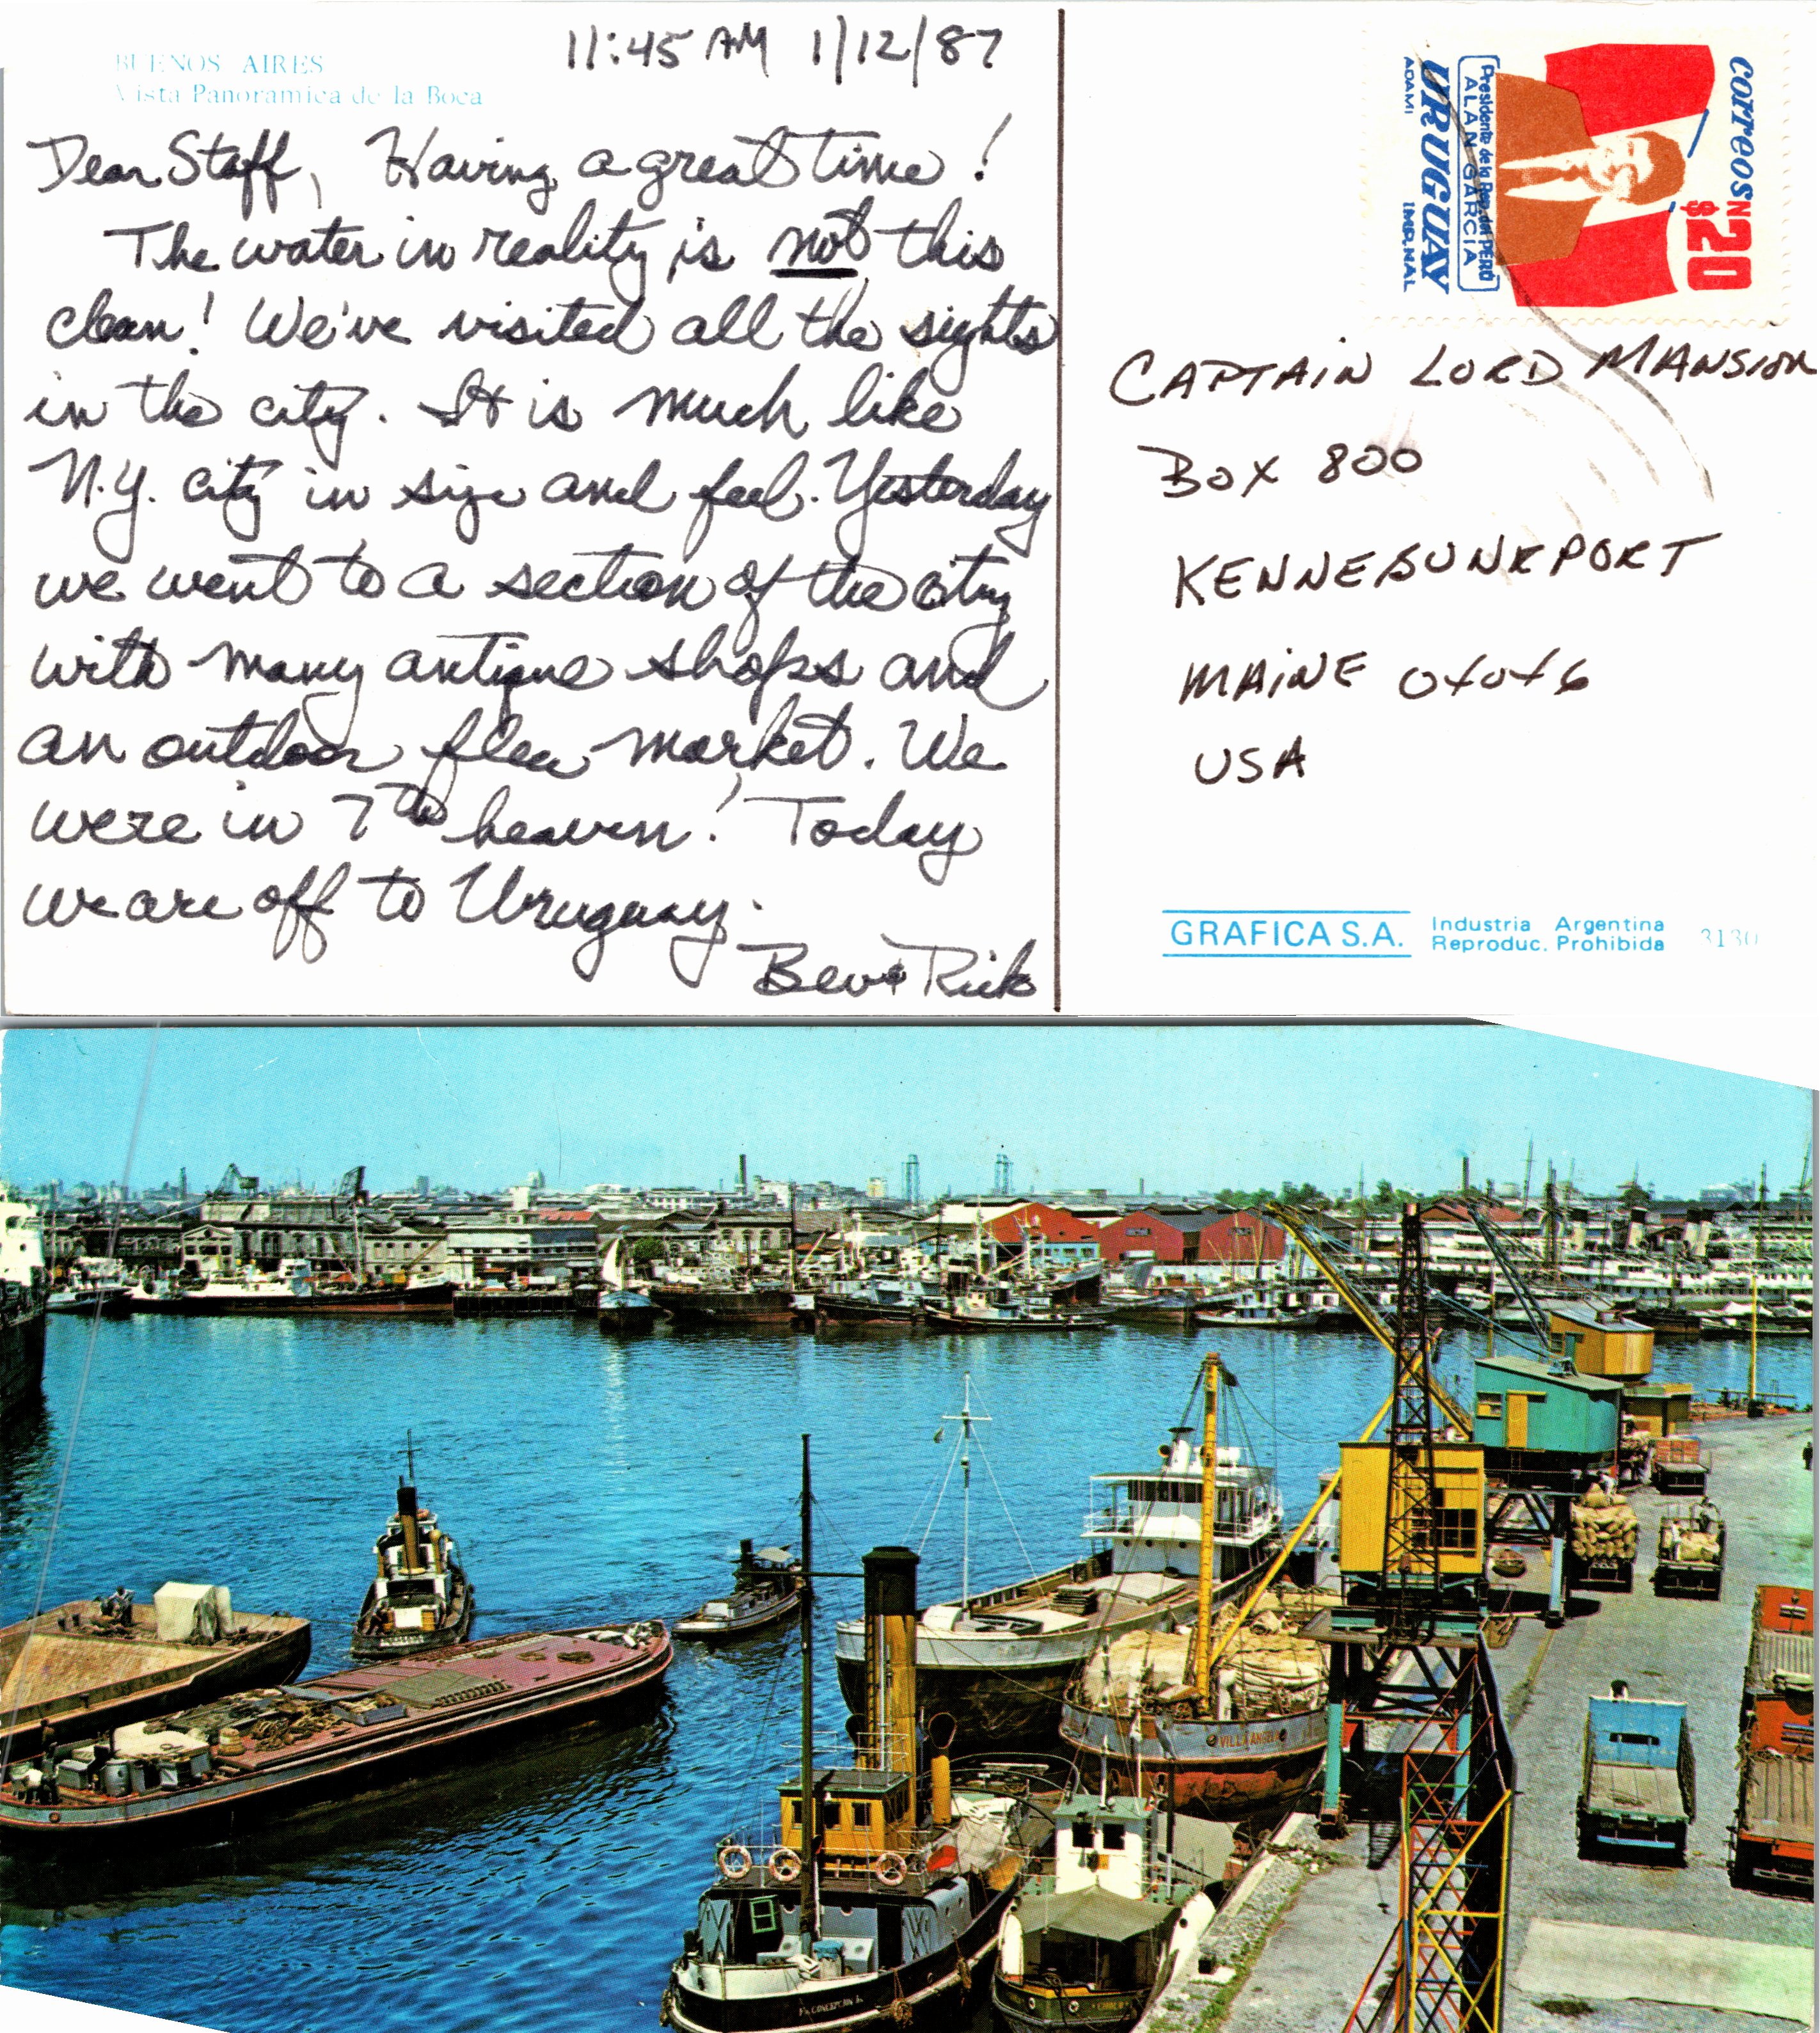 11:45 AM 1/12/87
BUENOS AIRES
Vista Panoramica de la Boca
Dear Staff, Having a great time!
The water in reality is not this
clean! We've visited all the sights
in the city. It is much like
N.Y. city in size and feel. Yesterday
we went to a section of the city
with many antique shops and
an outdoor flea market. We
were in 7th heaven! Today
we are off to Uruguay.
Bev & Rick
correos N$20
Presidente de la Rep. del PERÚ
ALAN GARCIA
URUGUAY
ADAMI IMP. NAL
CAPTAIN LORD MANSION
BOX 800
KENNEBUNKPORT
MAINE 04046
USA
GRAFICA S.A.
Industria Argentina
Reproduc. Prohibida
3130